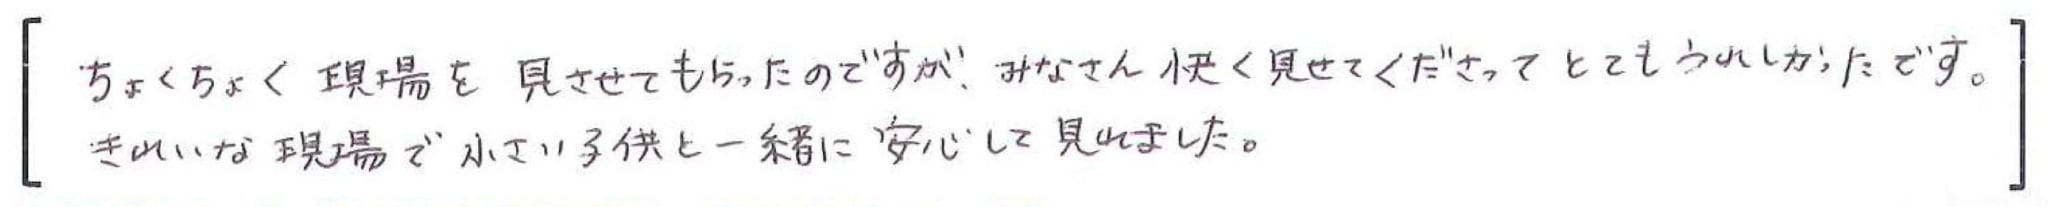 ちょくちょく現場を見させてもらったのですが、みなさん快く見せてくださってとてもうれしかったです。
きれいな現場で小さい子供と一緒に安心して見れました。